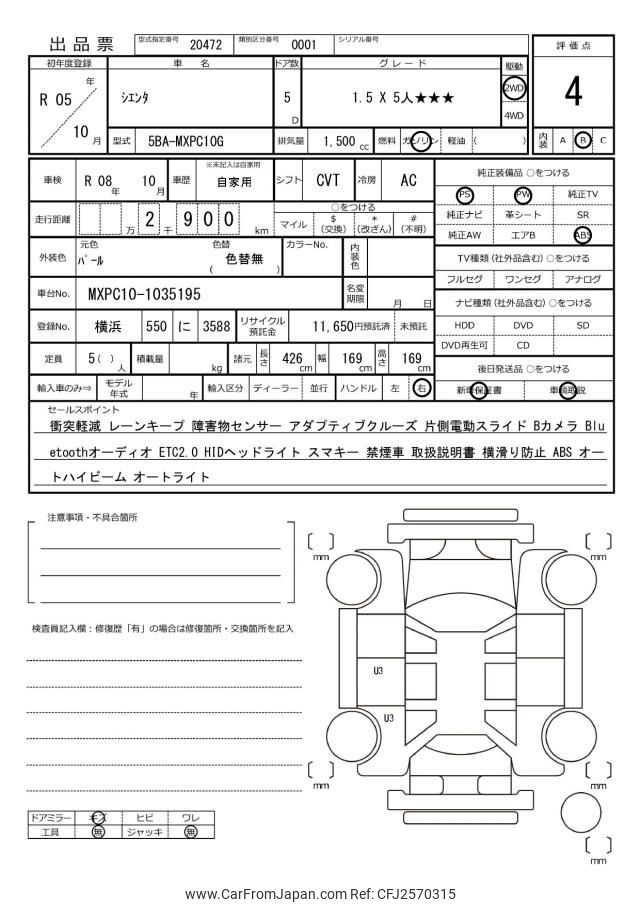 出品票 型式指定番号 20472 類別区分番号 0001 シリアル番号
評価点
4
内装 A B C
初年度登録 車名 ドア数 グレード 駆動
R 05 年 10 月 シエンタ 5 D 1.5 X 5人★★★ 2WD 4WD
型式 5BA-MXPC10G 排気量 1,500 cc 燃料 ガソリン 軽油 ( )
車検 R 08 年 10 月 車歴 ※未記入は自家用 自家用 シフト CVT 冷房 AC
走行距離 万 2 千 9 0 0 km
○をつける
マイル $ (交換) * (改ざん) # (不明)
外装色 元色 パール 色替 ( 色替無 ) カラーNo. 内装色
車台No. MXPC10-1035195 名変期限 月 日
登録No. 横浜 550 に 3588 リサイクル預託金 11,650円預託済 未預託
定員 5( ) 人 積載量 kg 諸元 長さ 426 cm 幅 169 cm 高さ 169 cm
輸入車のみ⇒ モデル年式 年 輸入区分 ディーラー 並行 ハンドル 左 右
純正装備品 ○をつける
PS PW 純正TV
純正ナビ 革シート SR
純正AW エアB ABS
TV種類(社外品含む) ○をつける
フルセグ ワンセグ アナログ
ナビ種類(社外品含む) ○をつける
HDD DVD SD
DVD再生可 CD
後日発送品 ○をつける
新車保証書 車輌取説
セールスポイント
衝突軽減 レーンキープ 障害物センサー アダプティブクルーズ 片側電動スライド Bカメラ Blu
etoothオーディオ ETC2.0 HIDヘッドライト スマキー 禁煙車 取扱説明書 横滑り防止 ABS オー
トハイビーム オートライト
注意事項・不具合箇所
検査員記入欄：修復歴「有」の場合は修復箇所・交換箇所を記入
mm
mm
U3
U3
mm
mm
mm
ドアミラー キズ ヒビ ワレ
工具 無 ジャッキ 無
www.CarFromJapan.com Ref: CFJ2570315